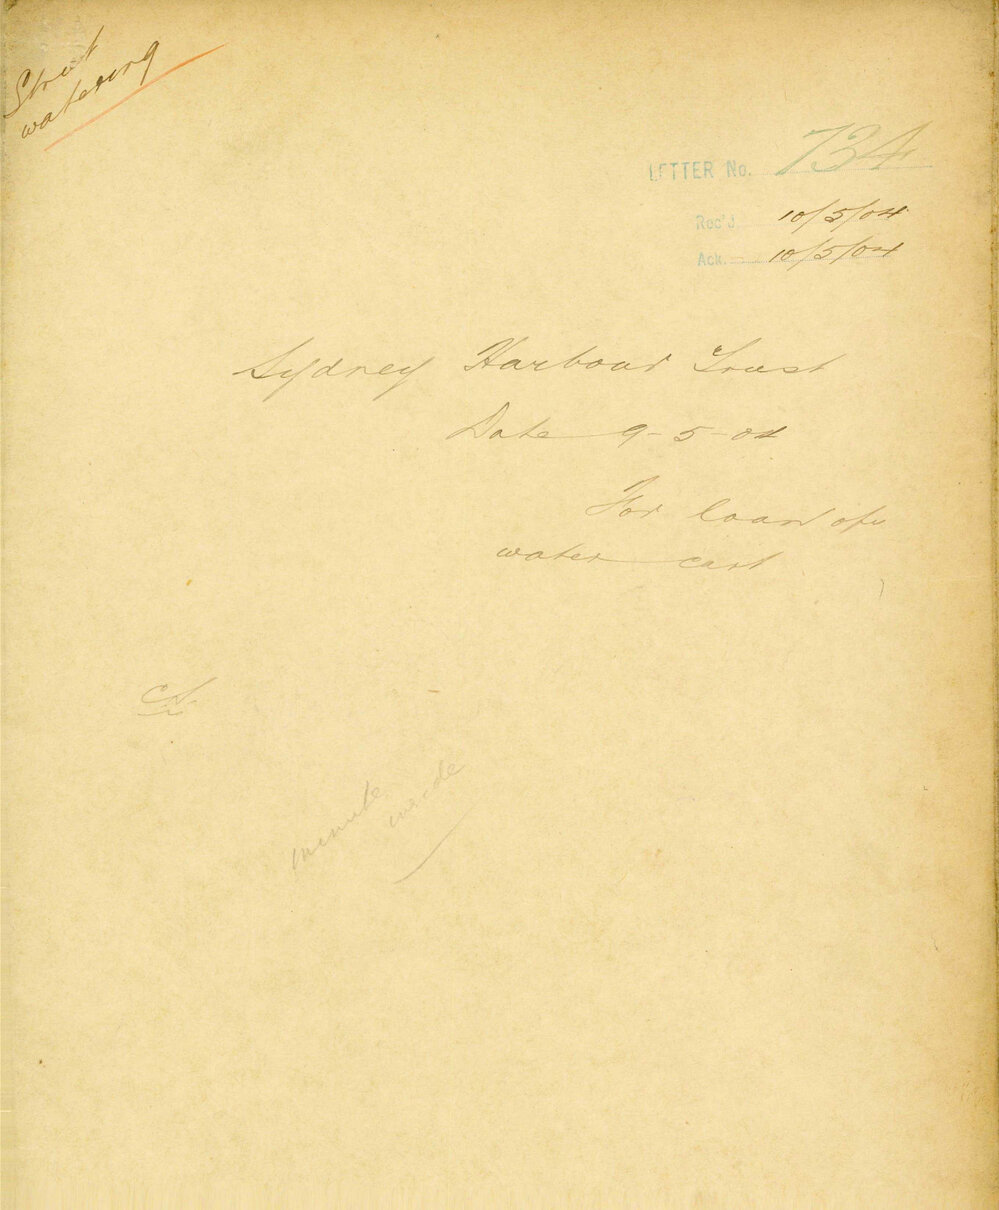 Street
watering
LETTER No. 734
Rec'd. 10/5/04
Ack. 10/5/04
Sydney Harbour Trust
Date 9-5-04
For loan of
water cart
minute
inside